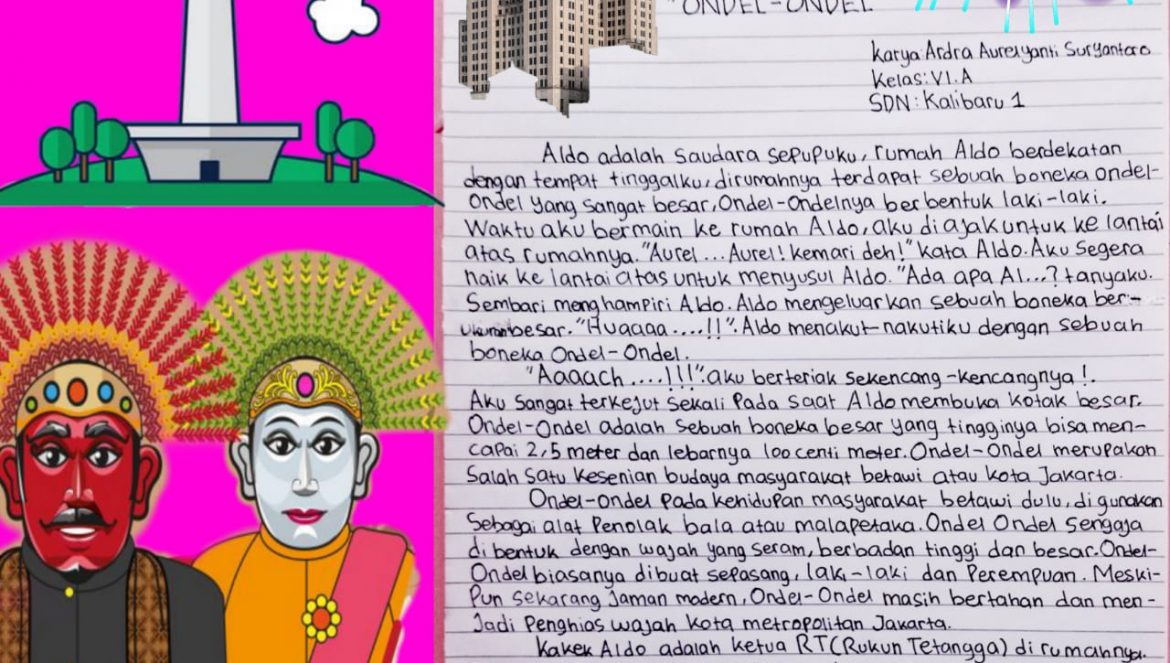 "ONDEL-ONDEL
Karya Ardra Aurelyanti Suryantoro
Kelas: VI.A
SDN: Kalibaru 1
Aldo adalah saudara sepupuku, rumah Aldo berdekatan
dengan tempat tinggalku, dirumahnya terdapat sebuah boneka ondel-
ondel yang sangat besar. Ondel-Ondelnya berbentuk laki-laki.
Waktu aku bermain ke rumah Aldo, aku di ajak untuk ke lantai
atas rumahnya. "Aurel ... Aurel! kemari deh!" kata Aldo. Aku segera
naik ke lantai atas untuk menyusul Aldo. "Ada apa Al...? tanyaku.
Sembari menghampiri Aldo. Aldo mengeluarkan sebuah boneka ber-
ukuran besar. "Huaaaa ....!!". Aldo menakut-nakutiku dengan sebuah
boneka Ondel-Ondel.
"Aaaach ....!!!". aku berteriak sekencang-kencangnya!.
Aku sangat terkejut sekali pada saat Aldo membuka kotak besar.
Ondel-Ondel adalah sebuah boneka besar yang tingginya bisa men-
capai 2,5 meter dan lebarnya 100 centi meter. Ondel-Ondel merupakan
Salah satu kesenian budaya masyarakat betawi atau kota Jakarta.
Ondel-ondel pada kehidupan masyarakat betawi dulu, di gunakan
Sebagai alat Penolak bala atau malapetaka. Ondel Ondel sengaja
di bentuk dengan wajah yang seram, berbadan tinggi dan besar. Ondel-
Ondel biasanya dibuat sepasang, laki-laki dan Perempuan. Meski-
Pun sekarang jaman modern, Ondel-Ondel masih bertahan dan men-
Jadi Penghias wajah kota metropolitan Jakarta.
Kakek Aldo adalah ketua RT (Rukun Tetangga) di rumahnya.